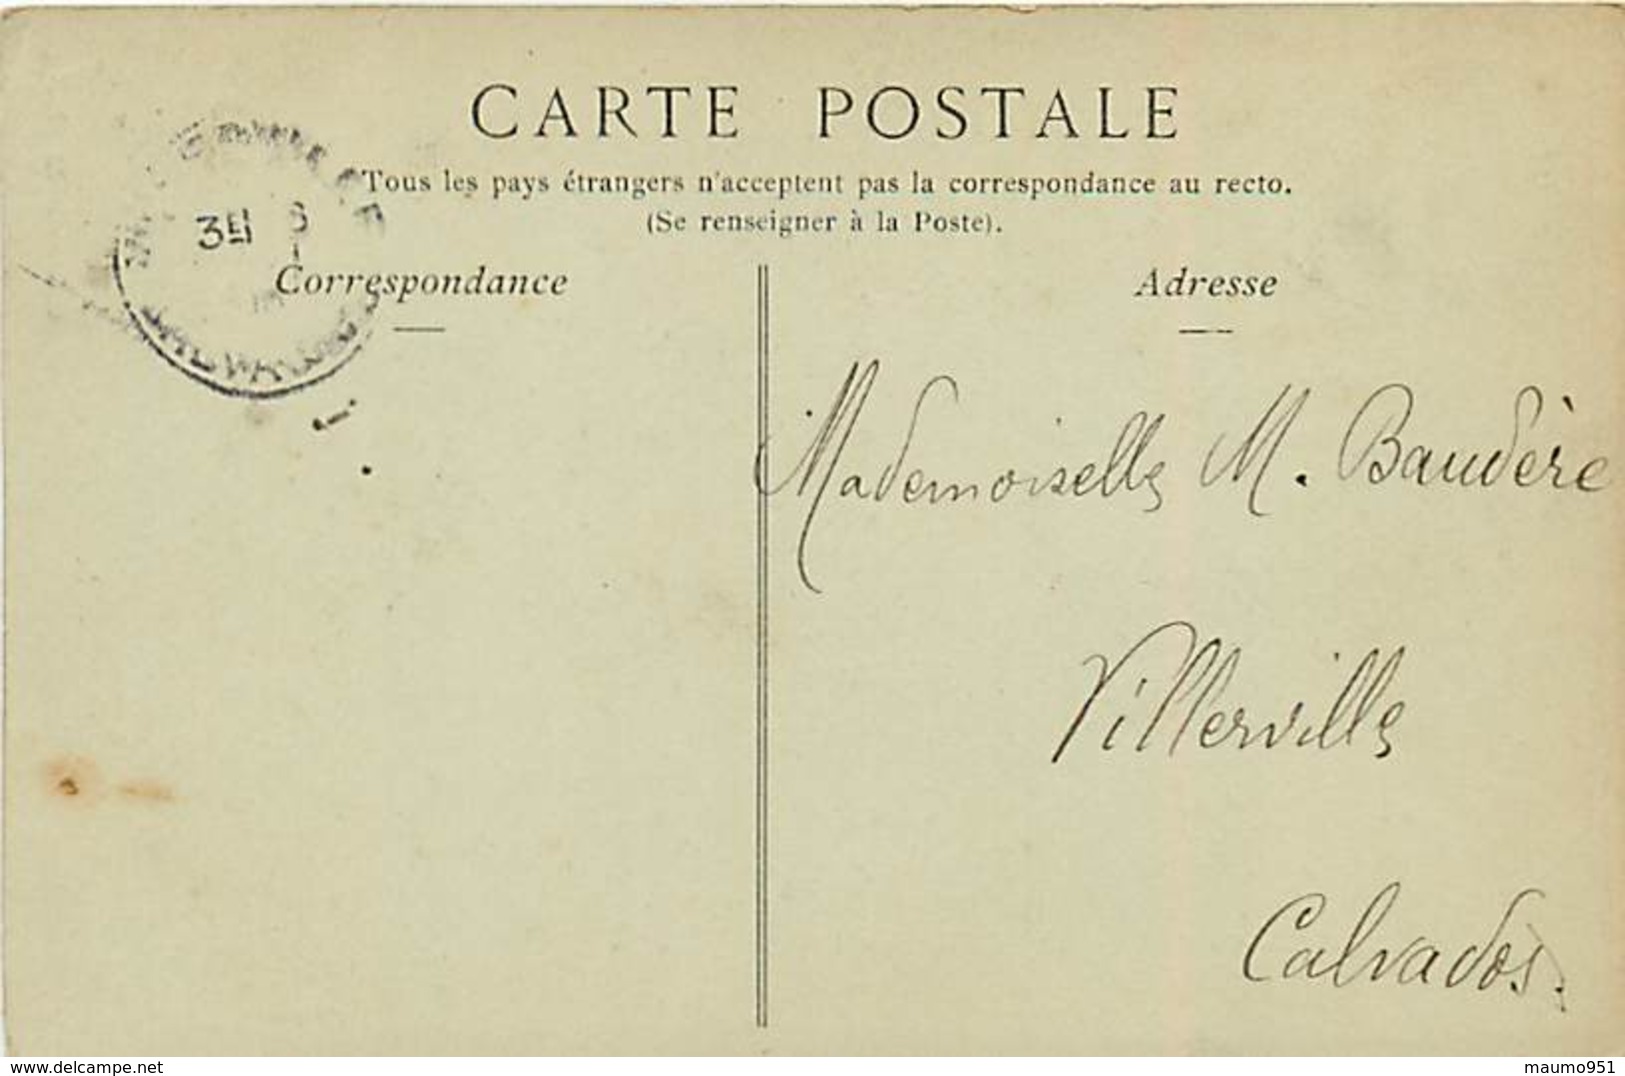 CARTE POSTALE
Tous les pays étrangers n'acceptent pas la correspondance au recto.
(Se renseigner à la Poste).
3E
Correspondance
Adresse
Mademoiselle M. Baudère
Villerville
Calvados.
delcampe.net
maumo951